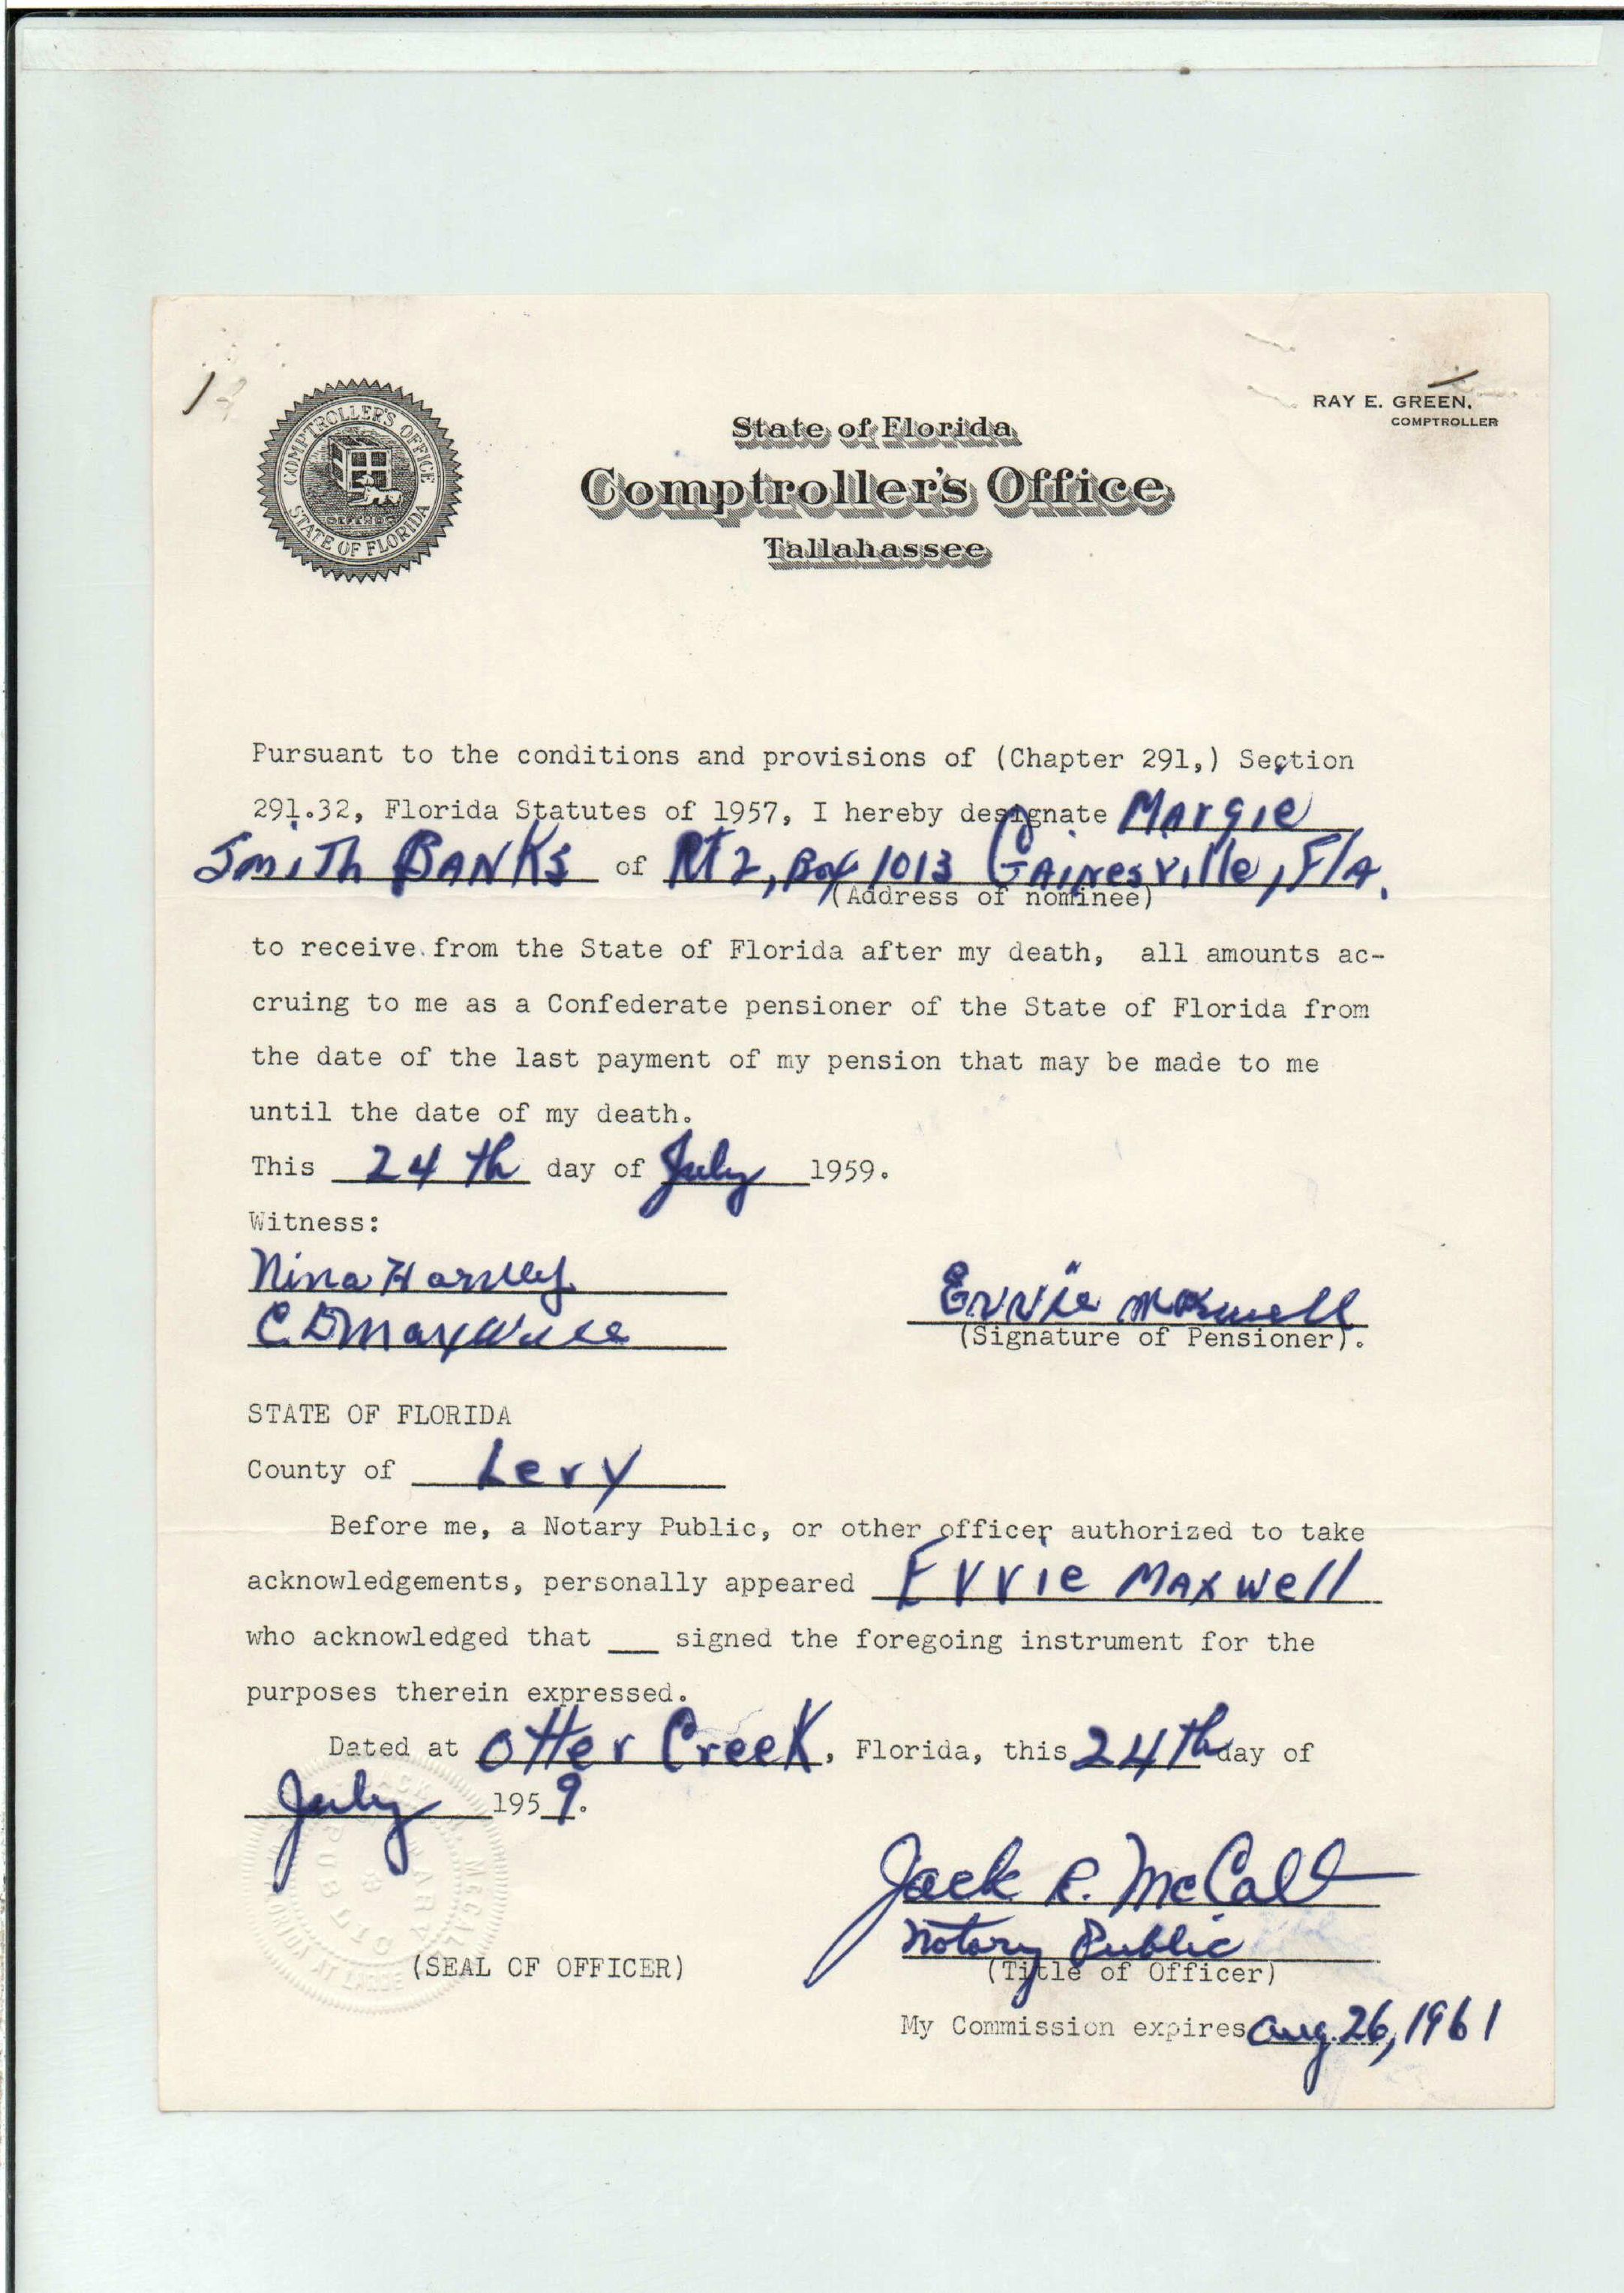 RAY E. GREEN,
COMPTROLLER
COMPTROLLER'S OFFICE
STATE OF FLORIDA
State of Florida
Comptroller's Office
Tallahassee
Pursuant to the conditions and provisions of (Chapter 291,) Section
291.32, Florida Statutes of 1957, I hereby designate Margie
Smith BANKS of Rt 2, Box 1013 GAINesville, FlA.
(Address of nominee)
to receive from the State of Florida after my death, all amounts ac-
cruing to me as a Confederate pensioner of the State of Florida from
the date of the last payment of my pension that may be made to me
until the date of my death.
This 24th day of July 1959.
Witness:
Nina Harvey
C D Maxwell
Evvie Maxwell
(Signature of Pensioner).
STATE OF FLORIDA
County of Levy
Before me, a Notary Public, or other officer authorized to take
acknowledgements, personally appeared Evvie MAxwell
who acknowledged that __ signed the foregoing instrument for the
purposes therein expressed.
Dated at Otter Creek, Florida, this 24th day of
July 1959.
Jack R. McCall
Notary Public
(SEAL OF OFFICER)
(Title of Officer)
My Commission expires Aug. 26, 1961